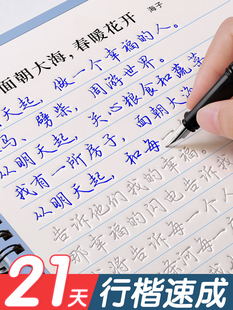 面朝大海，春暖花开
海子
从明天起，做一个幸福的人。
喂马、劈柴，周游世界。
从明天起，关心粮食和蔬菜
我有一所房子，面朝大海
从明天起，和每
告诉他们我的幸福。
那幸福的闪电告诉我
告诉每一个人
21天 行楷速成